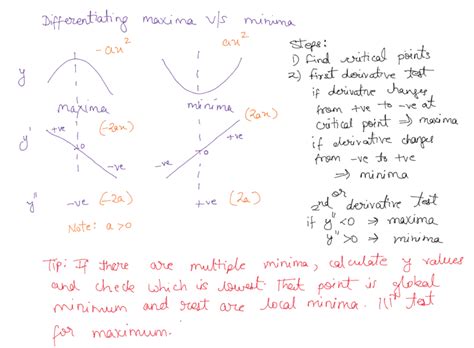 Differentiating maxima v/s minima
-ax²
ax²
y
maxima
minima
y'
+ve
(-2ax)
0
-ve
(2ax)
+ve
0
-ve
y"
-ve
(-2a)
+ve
(2a)
Note: a>0
Steps:
1) Find critical points
2) First derivative test
if derivative changes
from +ve to -ve at
critical point ⇒ maxima
if derivative changes
from -ve to +ve
⇒ minima
or
2nd derivative test
if y"<0 ⇒ maxima
y">0 ⇒ minima
Tip: If there are multiple minima, calculate y values
and check which is lowest. That point is global
minimum and rest are local minima. |||ly test
for maximum.